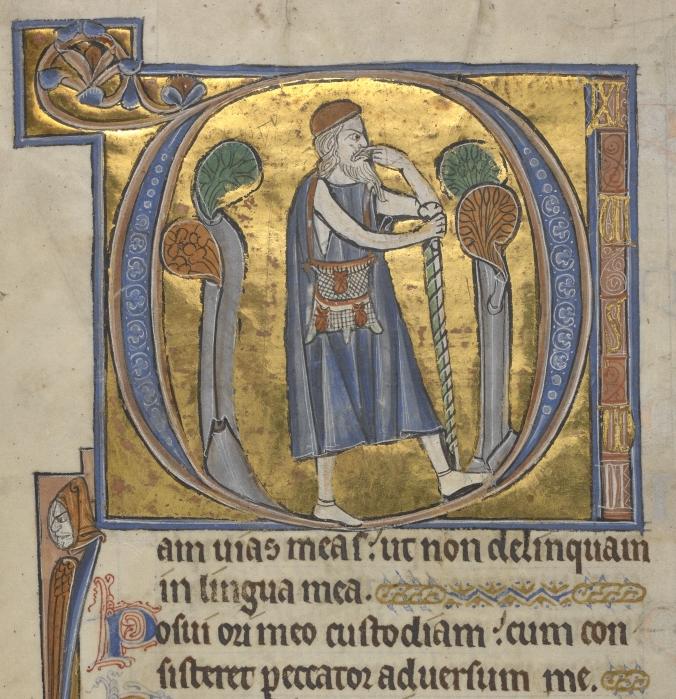 D
am uias meas: ut non delinquam
in lingua mea.
Posui ori meo custodiam: cum con
sisteret peccator aduersum me.